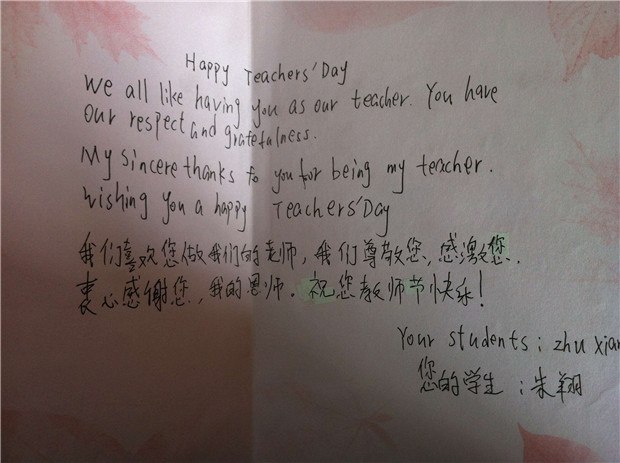 Happy Teachers' Day
We all like having you as our teacher. You have
our respect and gratefulness.
My sincere thanks to you for being my teacher.
wishing you a happy Teachers' Day
我们喜欢您做我们的老师，我们尊敬您，感激您.
衷心感谢您，我的恩师. 祝您教师节快乐!
Your students: zhu xian
您的学生：朱翔